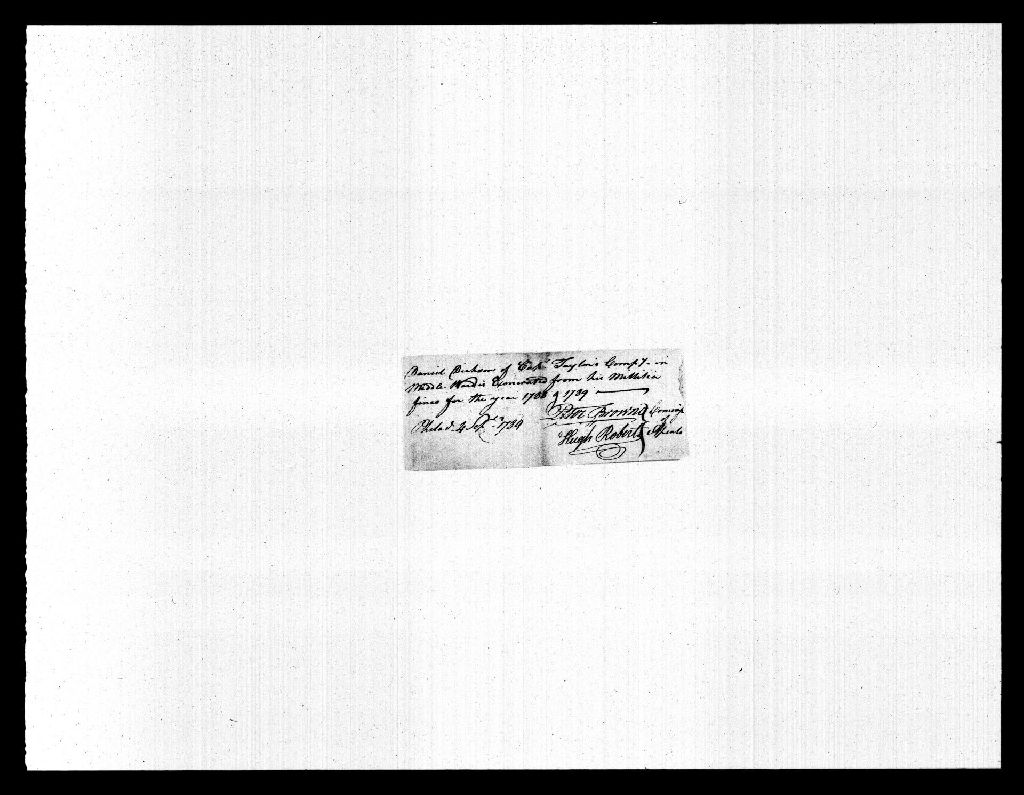 Daniel of Capt Taylors Compy in
Middle Ward is Exonerated from his Millitia
fines for the year 1788 & 1789
Philada. 4 Sepr. 1789
Peter Browne
Hugh Roberts
Comrs of
Appeals